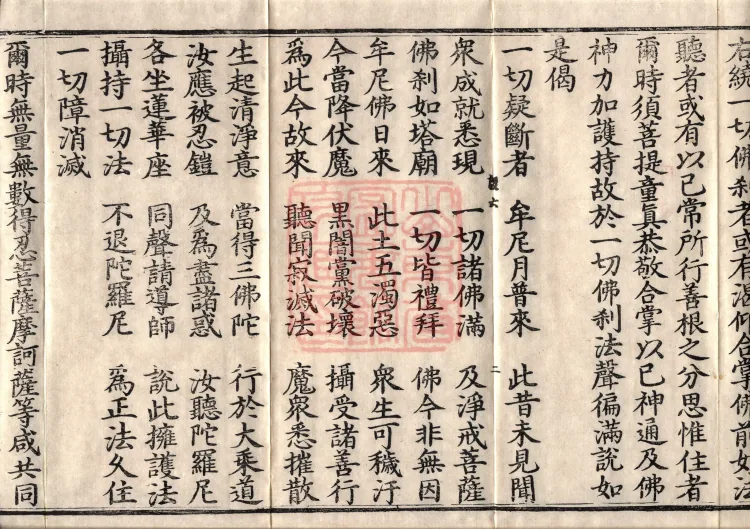 右繞一切佛刹者或有渴仰合掌佛前如法
聽者或有以己常所行善根之分思惟住者
爾時須菩提童真恭敬合掌以己神通及佛
神力加護持故於一切佛刹法聲徧滿說如
是偈
一切疑斷者 牟尼月普來 此昔未見聞
眾成就悉現 一切諸佛滿 及淨戒菩薩
佛刹如塔廟 一切皆禮拜 佛今非無因
牟尼佛日來 此土五濁惡 眾生可穢汙
今當降伏魔 黑闇黨破壞 攝受諸善行
為此今故來 聽聞寂滅法 魔眾悉摧散
生起清淨意 當得三佛陀 行於大乘道
汝應被忍鎧 及為盡諸惑 汝聽陀羅尼
各坐蓮華座 同聲請導師 說此擁護法
攝持一切法 不退陀羅尼 為正法久住
一切障消滅
爾時無量無數得忍菩薩摩訶薩等咸共同